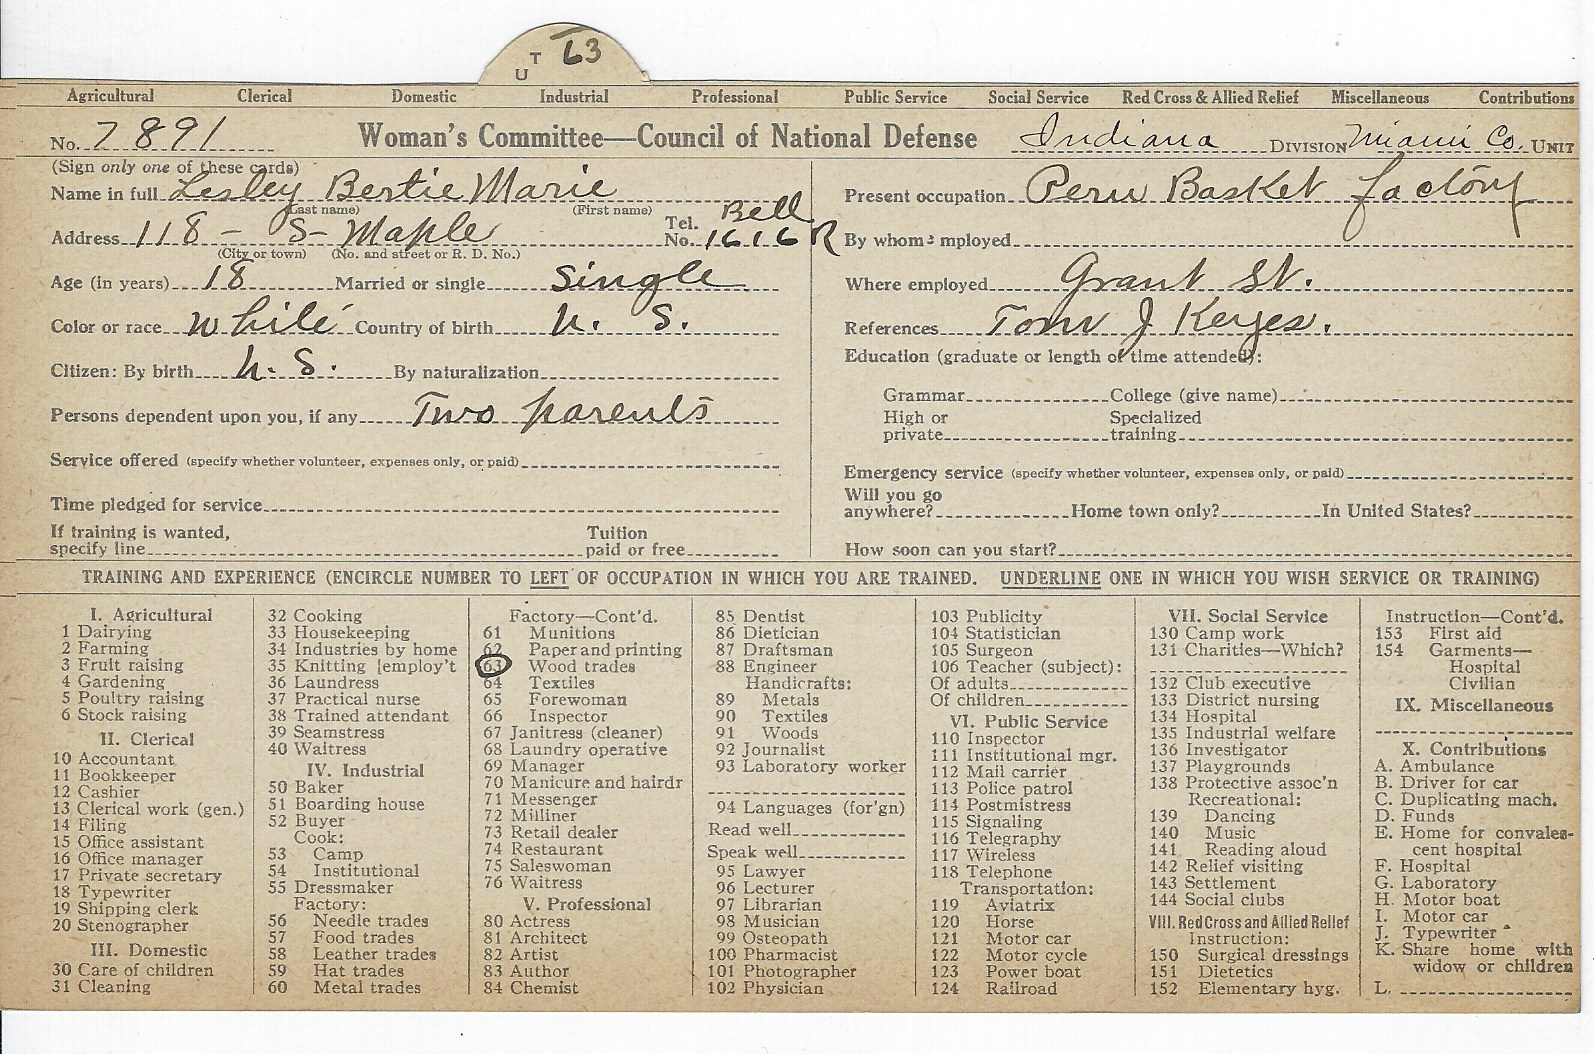 T 63
U
Agricultural Clerical Domestic Industrial Professional Public Service Social Service Red Cross & Allied Relief Miscellaneous Contributions
No. 7891 Woman's Committee—Council of National Defense Indiana DIVISION Miami Co. UNIT
(Sign only one of these cards)
Name in full Lesley Bertie Marie
(Last name) (First name)
Address 118 - S- Maple Tel. No. Bell 1616 R
(City or town) (No. and street or R. D. No.)
Age (in years) 18 Married or single Single
Color or race White Country of birth U. S.
Citizen: By birth U. S. By naturalization
Persons dependent upon you, if any Two parents
Service offered (specify whether volunteer, expenses only, or paid)
Time pledged for service
If training is wanted, Tuition
specify line paid or free
Present occupation Peru Basket factory
By whom employed
Where employed Grant St.
References Tom J Keyes.
Education (graduate or length of time attended):
Grammar College (give name)
High or Specialized
private training
Emergency service (specify whether volunteer, expenses only, or paid)
Will you go
anywhere? Home town only? In United States?
How soon can you start?
TRAINING AND EXPERIENCE (ENCIRCLE NUMBER TO LEFT OF OCCUPATION IN WHICH YOU ARE TRAINED. UNDERLINE ONE IN WHICH YOU WISH SERVICE OR TRAINING)
I. Agricultural
1 Dairying
2 Farming
3 Fruit raising
4 Gardening
5 Poultry raising
6 Stock raising
II. Clerical
10 Accountant
11 Bookkeeper
12 Cashier
13 Clerical work (gen.)
14 Filing
15 Office assistant
16 Office manager
17 Private secretary
18 Typewriter
19 Shipping clerk
20 Stenographer
III. Domestic
30 Care of children
31 Cleaning
32 Cooking
33 Housekeeping
34 Industries by home
35 Knitting [employ't
36 Laundress
37 Practical nurse
38 Trained attendant
39 Seamstress
40 Waitress
IV. Industrial
50 Baker
51 Boarding house
52 Buyer
Cook:
53 Camp
54 Institutional
55 Dressmaker
Factory:
56 Needle trades
57 Food trades
58 Leather trades
59 Hat trades
60 Metal trades
Factory—Cont'd.
61 Munitions
62 Paper and printing
63 Wood trades
64 Textiles
65 Forewoman
66 Inspector
67 Janitress (cleaner)
68 Laundry operative
69 Manager
70 Manicure and hairdr
71 Messenger
72 Milliner
73 Retail dealer
74 Restaurant
75 Saleswoman
76 Waitress
V. Professional
80 Actress
81 Architect
82 Artist
83 Author
84 Chemist
85 Dentist
86 Dietician
87 Draftsman
88 Engineer
Handicrafts:
89 Metals
90 Textiles
91 Woods
92 Journalist
93 Laboratory worker
94 Languages (for'gn)
Read well
Speak well
95 Lawyer
96 Lecturer
97 Librarian
98 Musician
99 Osteopath
100 Pharmacist
101 Photographer
102 Physician
103 Publicity
104 Statistician
105 Surgeon
106 Teacher (subject):
Of adults
Of children
VI. Public Service
110 Inspector
111 Institutional mgr.
112 Mail carrier
113 Police patrol
114 Postmistress
115 Signaling
116 Telegraphy
117 Wireless
118 Telephone
Transportation:
119 Aviatrix
120 Horse
121 Motor car
122 Motor cycle
123 Power boat
124 Railroad
VII. Social Service
130 Camp work
131 Charities—Which?
132 Club executive
133 District nursing
134 Hospital
135 Industrial welfare
136 Investigator
137 Playgrounds
138 Protective assoc'n
Recreational:
139 Dancing
140 Music
141 Reading aloud
142 Relief visiting
143 Settlement
144 Social clubs
VIII. Red Cross and Allied Relief
Instruction:
150 Surgical dressings
151 Dietetics
152 Elementary hyg.
Instruction—Cont'd.
153 First aid
154 Garments—
Hospital
Civilian
IX. Miscellaneous
X. Contributions
A. Ambulance
B. Driver for car
C. Duplicating mach.
D. Funds
E. Home for convales-
cent hospital
F. Hospital
G. Laboratory
H. Motor boat
I. Motor car
J. Typewriter
K. Share home with
widow or children
L.